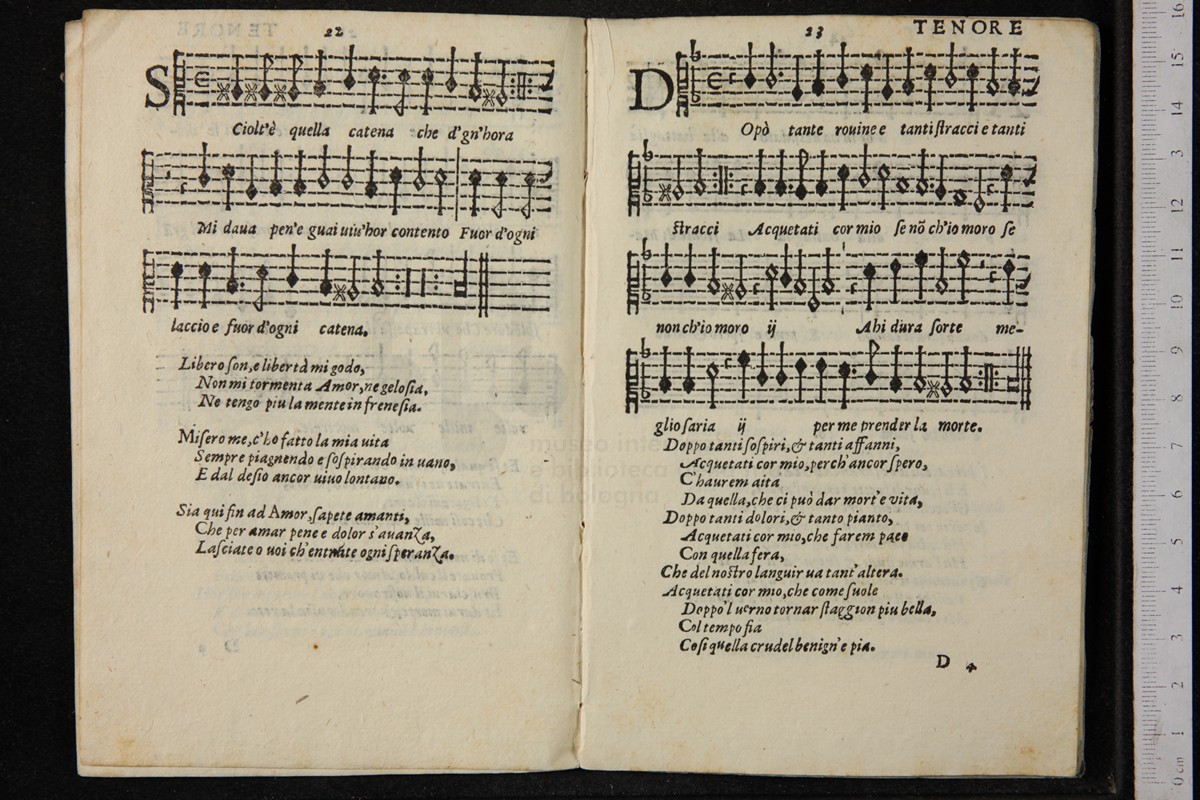 22
S
Ciolt'è quella catena che d'gn'hora
Mi daua pen'e guai uiu'hor contento Fuor d'ogni
laccio e fuor d'ogni catena.
Libero son, e libertà mi godo,
Non mi tormenta Amor, ne gelosia,
Ne tengo piu la mente in frenesia.
Misero me, c'ho fatto la mia uita
Sempre piagnendo e sospirando in uano,
E dal desio ancor uiuo lontano.
Sia qui fin ad Amor, sapete amanti,
Che per amar pene e dolor s'auanza,
Lasciate o uoi ch'entrate ogni speranza.
23 TENORE
D
Opò tante rouine e tanti stracci e tanti
stracci Acquetati cor mio se nõ ch'io moro se
non ch'io moro ij Ahi dura sorte me-
glio saria ij per me prender la morte.
Doppo tanti sospiri, & tanti affanni,
Acquetati cor mio, perch'ancor spero,
C'haurem aita
Da quella, che ci può dar mort'e vita,
Doppo tanti dolori, & tanto pianto,
Acquetati cor mio, che farem pace
Con quella fera,
Che del nostro languir ua tant'altera.
Acquetati cor mio, che come suole
Doppo'l uerno tornar staggion piu bella,
Col tempo fia
Cosi quella crudel benign'e pia.
D 4
museo inte
e biblioteca
di bologna